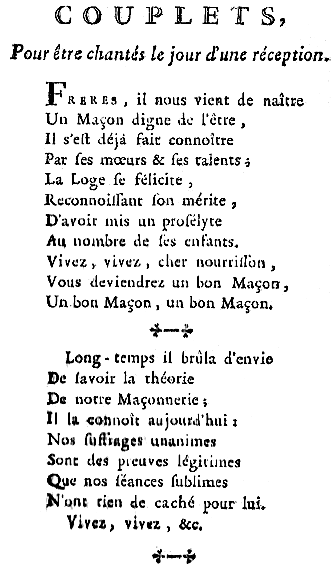 COUPLETS,
Pour être chantés le jour d'une réception.
FRERES, il nous vient de naître
Un Maçon digne de l'être,
Il s'eſt déjà fait connoître
Par ſes mœurs & ſes talents;
La Loge ſe félicite,
Reconnoiſſant ſon mérite,
D'avoir mis un proſélyte
Au nombre de ſes enfants.
Vivez, vivez, cher nourriſſon,
Vous deviendrez un bon Maçon,
Un bon Maçon, un bon Maçon.
Long-temps il brûla d'envie
De ſavoir la théorie
De notre Maçonnerie;
Il la connoît aujourd'hui:
Nos ſuffrages unanimes
Sont des preuves légitimes
Que nos ſéances ſublimes
N'ont rien de caché pour lui.
Vivez, vivez, &c.